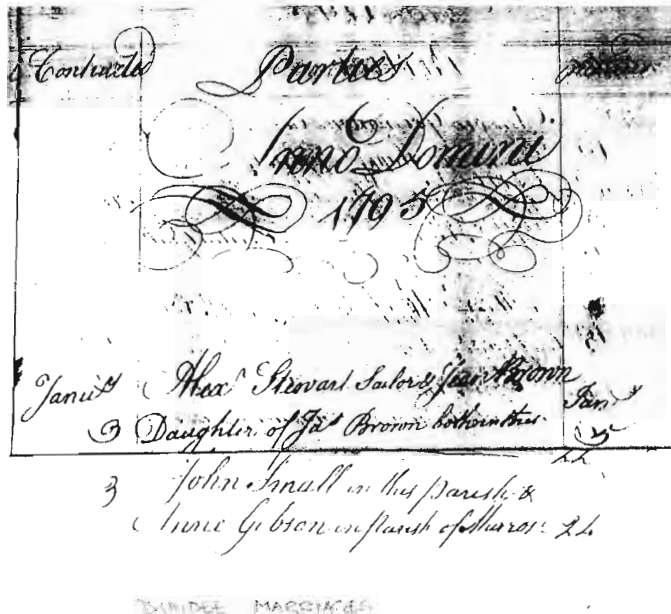 Contracted Parties
Anno Domini
1795
Janu.ry Alex.r Stewart Sailor & Jean Brown Jan.y
3 Daughter of Ja.s Brown both in this 5
22
3 John Small in this parish &
Anne Gibson in parish of Murros 24
DUNDEE MARRIAGES